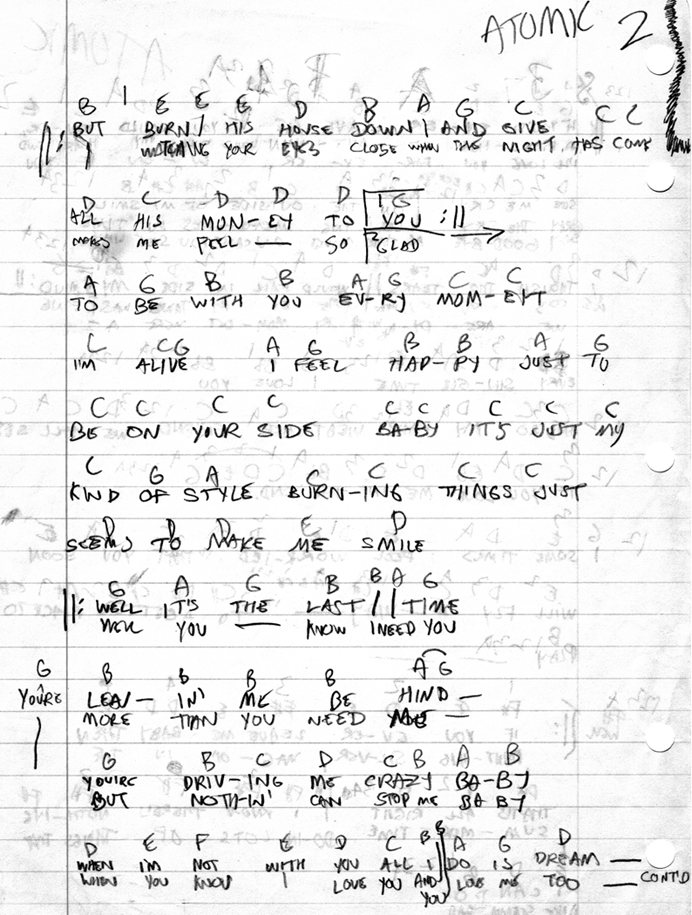 ATOMIC 2
B | E E E D B A G C C C
||: BUT BURN HIS HOUSE DOWN | AND GIVE
WATCHING YOUR EYES CLOSE WHEN THIS NIGHT HAS COME
D C D D D 1 G
ALL HIS MON-EY TO YOU :||
MAKES ME FEEL — SO 2 GLAD
A G B B A G C C
TO BE WITH YOU EV-RY MOM-ENT
C CG A G B B A G
I'M ALIVE I FEEL HAP-PY JUST TO
C C C C C C C C C
BE ON YOUR SIDE BA-BY IT'S JUST MY
C G A C C C C
KIND OF STYLE BURN-ING THINGS JUST
D D E D
SEEMS TO MAKE ME SMILE
G A G B B A G
||: WELL IT'S THE LAST // TIME
YOU — KNOW I NEED YOU
G B B B B A G
YOU'RE LEAV-IN' ME BE HIND —
MORE THAN YOU NEED ME —
G B C D C B A B
YOU'RE DRIV-ING ME CRAZY BA-BY
BUT NOTH-IN' CAN STOP ME BA BY
D E F E D C B B A G D
WHEN I'M NOT WITH YOU ALL I DO IS DREAM —
WHEN YOU KNOW I LOVE YOU AND YOU LOVE ME TOO — CONT'D